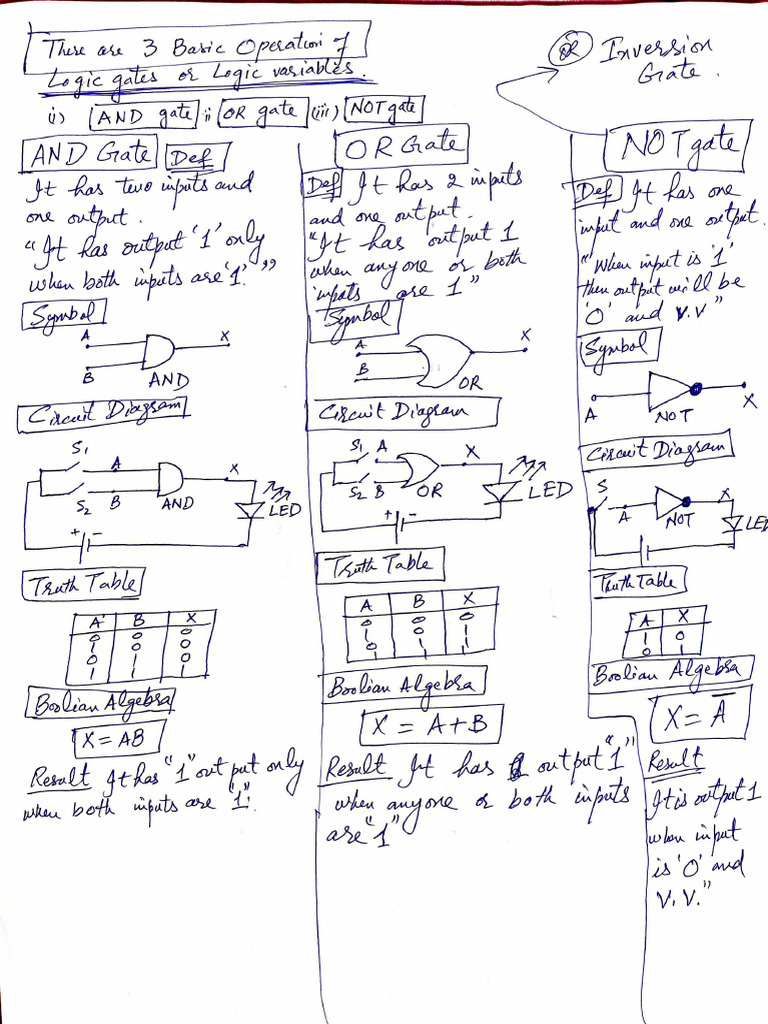 There are 3 Basic Operation of
Logic gates or Logic variables.
i) AND gate ii OR gate (iii) NOT gate
OR Inversion
Gate.
AND Gate Def
It has two inputs and
one output.
“It has output '1' only
when both inputs are '1'.”
Symbol
A
B
X
AND
Circuit Diagram
S1
A
S2
B
AND
X
LED
+ −
Truth Table
A B X
0 0 0
1 0 0
0 1 0
1 1 1
Boolian Algebra
X = AB
Result It has "1" output only
when both inputs are "1".
OR Gate
Def It has 2 inputs
and one output.
“It has output 1
when anyone or both
inputs are 1”
Symbol
A
B
X
OR
Circuit Diagram
S1 A
S2 B
OR
X
LED
+ −
Truth Table
A B X
0 0 0
1 0 1
0 1 1
1 1 1
Boolian Algebra
X = A+B
Result It has output "1"
when anyone or both inputs
are "1"
NOT gate
Def It has one
input and one output.
“When input is '1'
then output will be
'0' and v.v”
Symbol
A
NOT
X
Circuit Diagram
S
A
NOT
X
LED
Truth Table
A X
1 0
0 1
Boolian Algebra
X = A̅
Result
It is output 1
when input
is '0' and
v.v.”